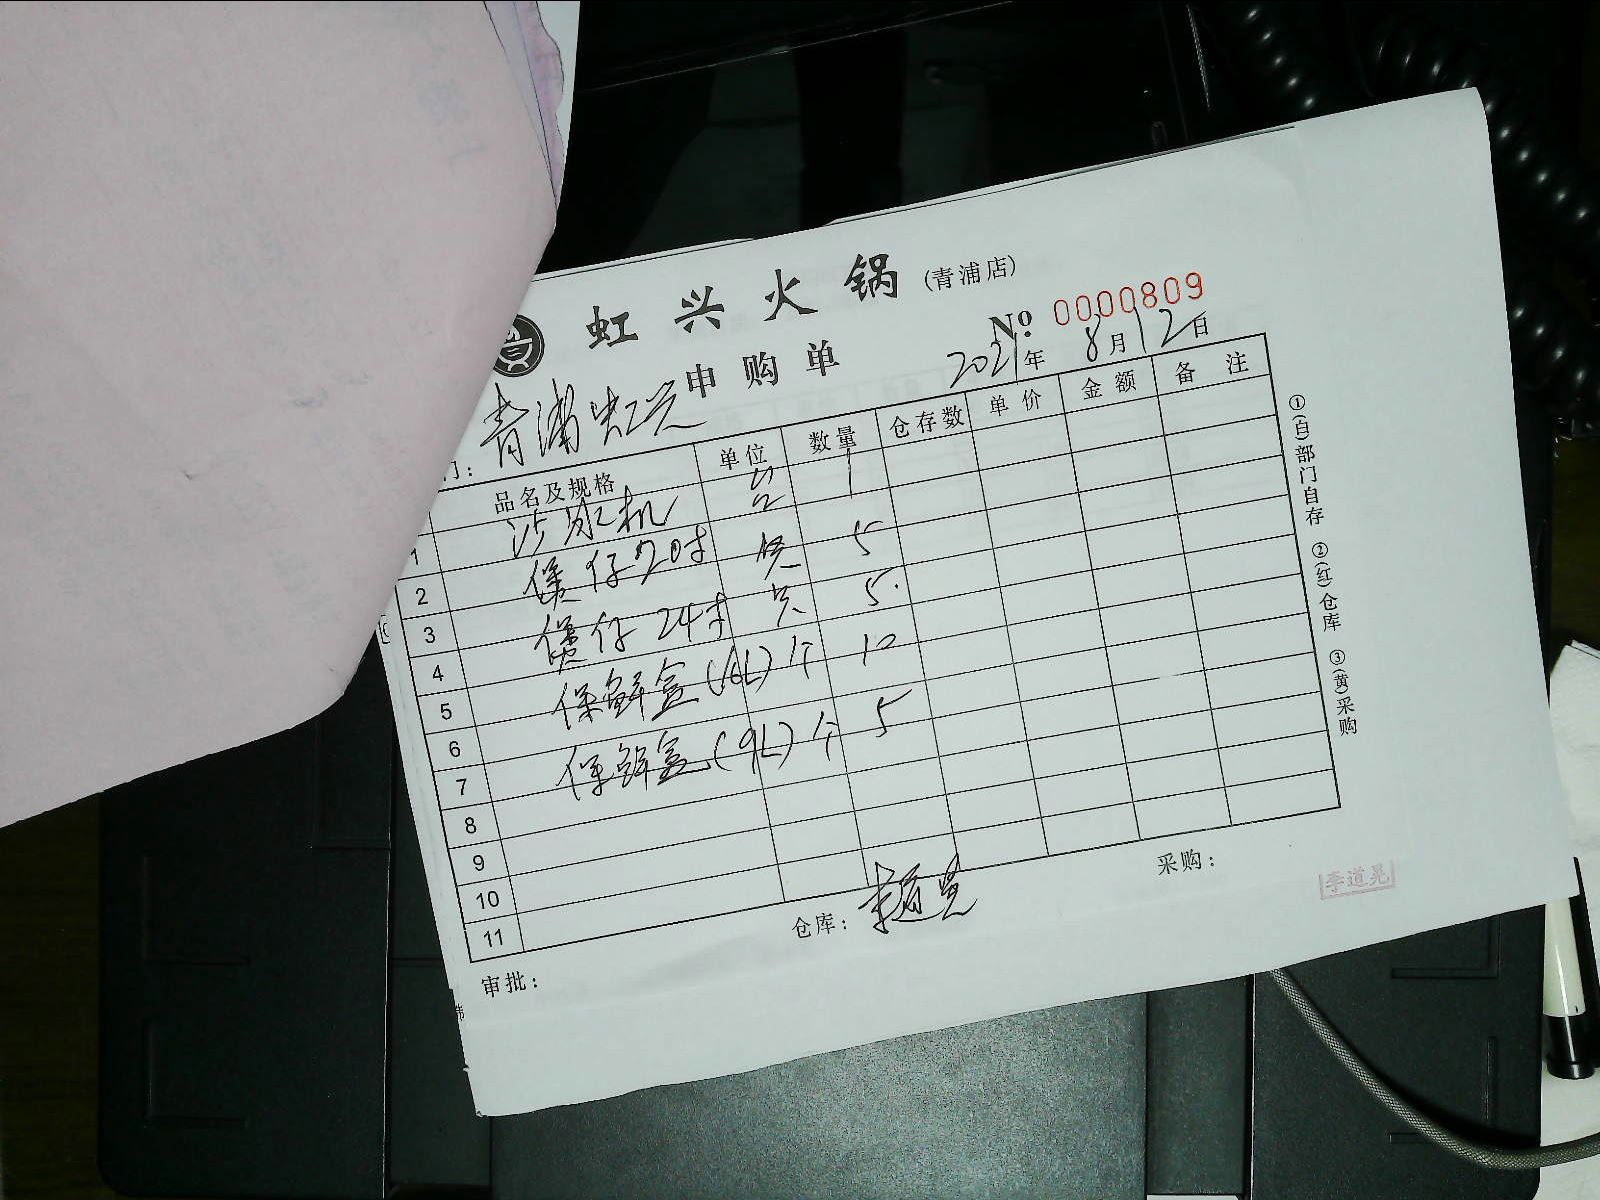 虹兴火锅(青浦店)
申购单
No 0000809
2021年8月12日
门：青浦虹兴
品名及规格 单位 数量 仓存数 单价 金额 备注
1 沙冰机 台 1
2 煲仔20寸 只 5
3 煲仔24寸 只 5
4 保鲜盒(16L) 个 10
5 保鲜盒(9L) 个 5
6
7
8
9
10
11
审批：
仓库：李道晃
采购：
李道晃
①(白)部门自存 ②(红)仓库 ③(黄)采购